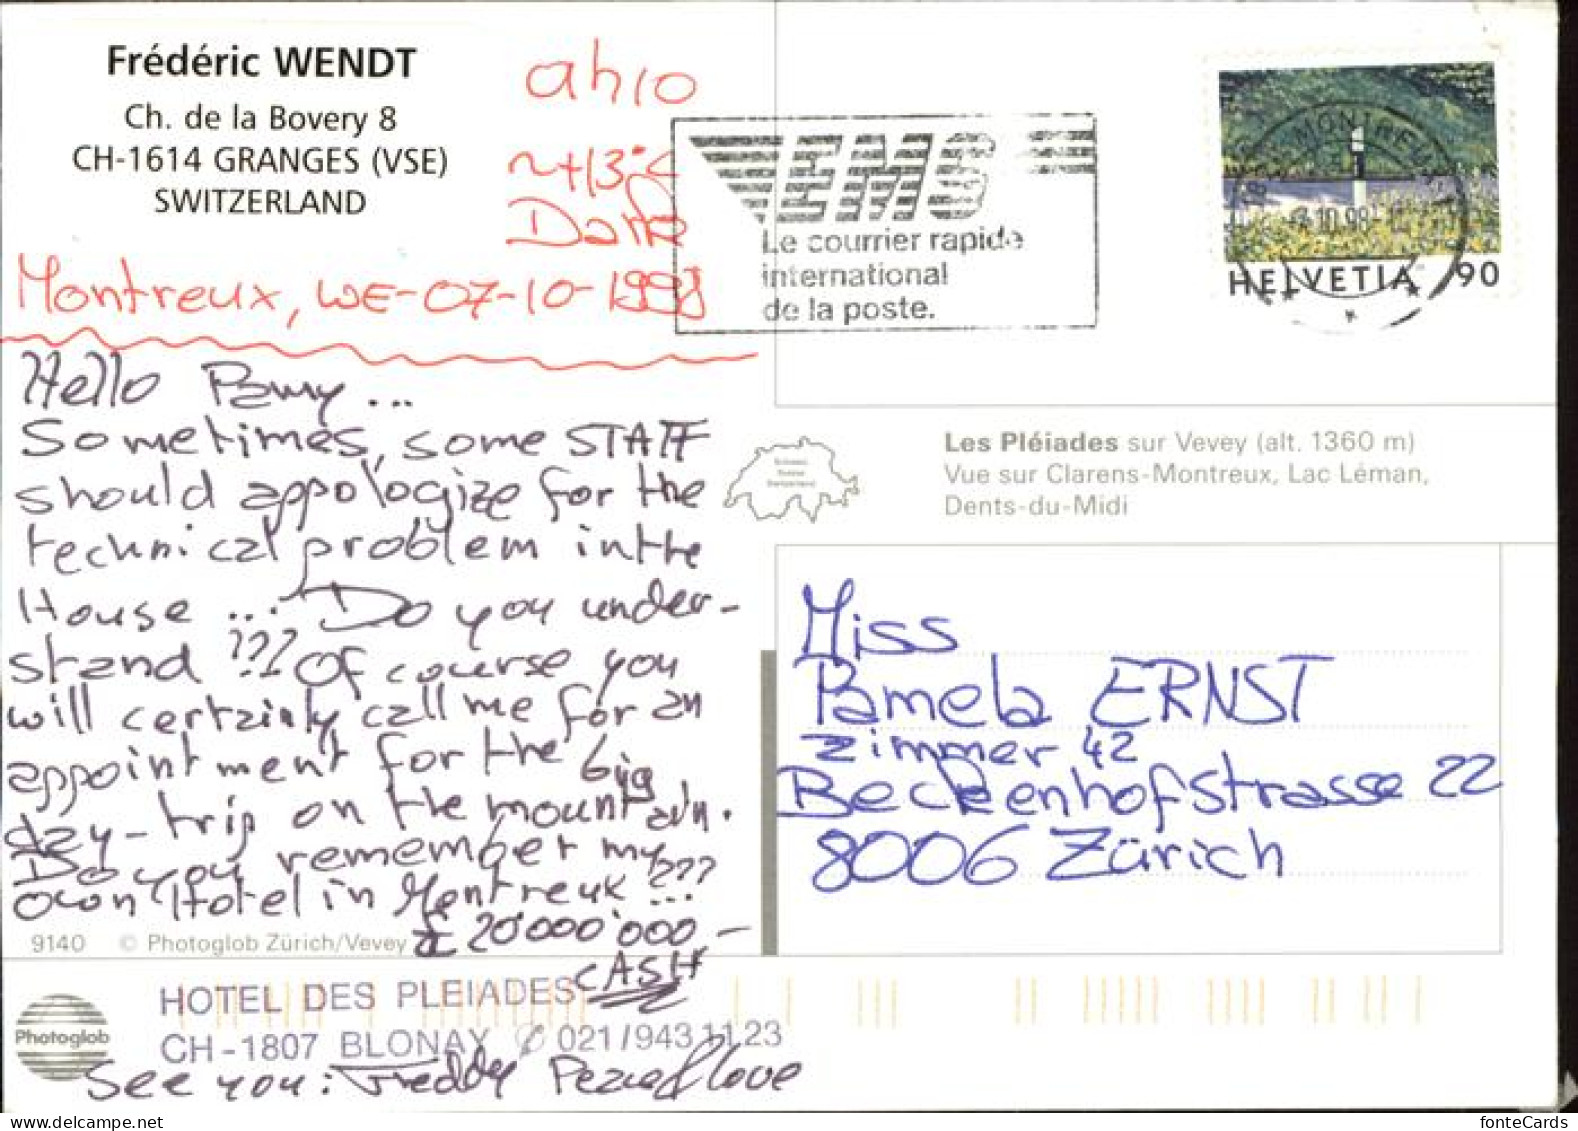 Frédéric WENDT
Ch. de la Bovery 8
CH-1614 GRANGES (VSE)
SWITZERLAND
ah10
~+13°C
Montreux, WE-07-10-1998
EMS
Le courrier rapide
international
de la poste.
MONTREUX
10.98-
HELVETIA 90
Hello Pamy...
Sometimes, some STAFF
should appologize for the
technical problem in the
House ... Do you under-
stand ??? Of course you
will certainly call me for an
appointment for the big
day-trip on the mountain.
Do you remember my
own Hotel in Montreux ???
20'000'000.-
CASH
9140 © Photoglob Zürich/Vevey
HOTEL DES PLEIADES
CH-1807 BLONAY 021/943 11 23
Photoglob
See you: Freddy Peace & love
Les Pléiades sur Vevey (alt. 1360 m)
Vue sur Clarens-Montreux, Lac Léman,
Dents-du-Midi
Miss
Pamela ERNST
Zimmer 42
Beckenhofstrasse 22
8006 Zürich
fonteCards